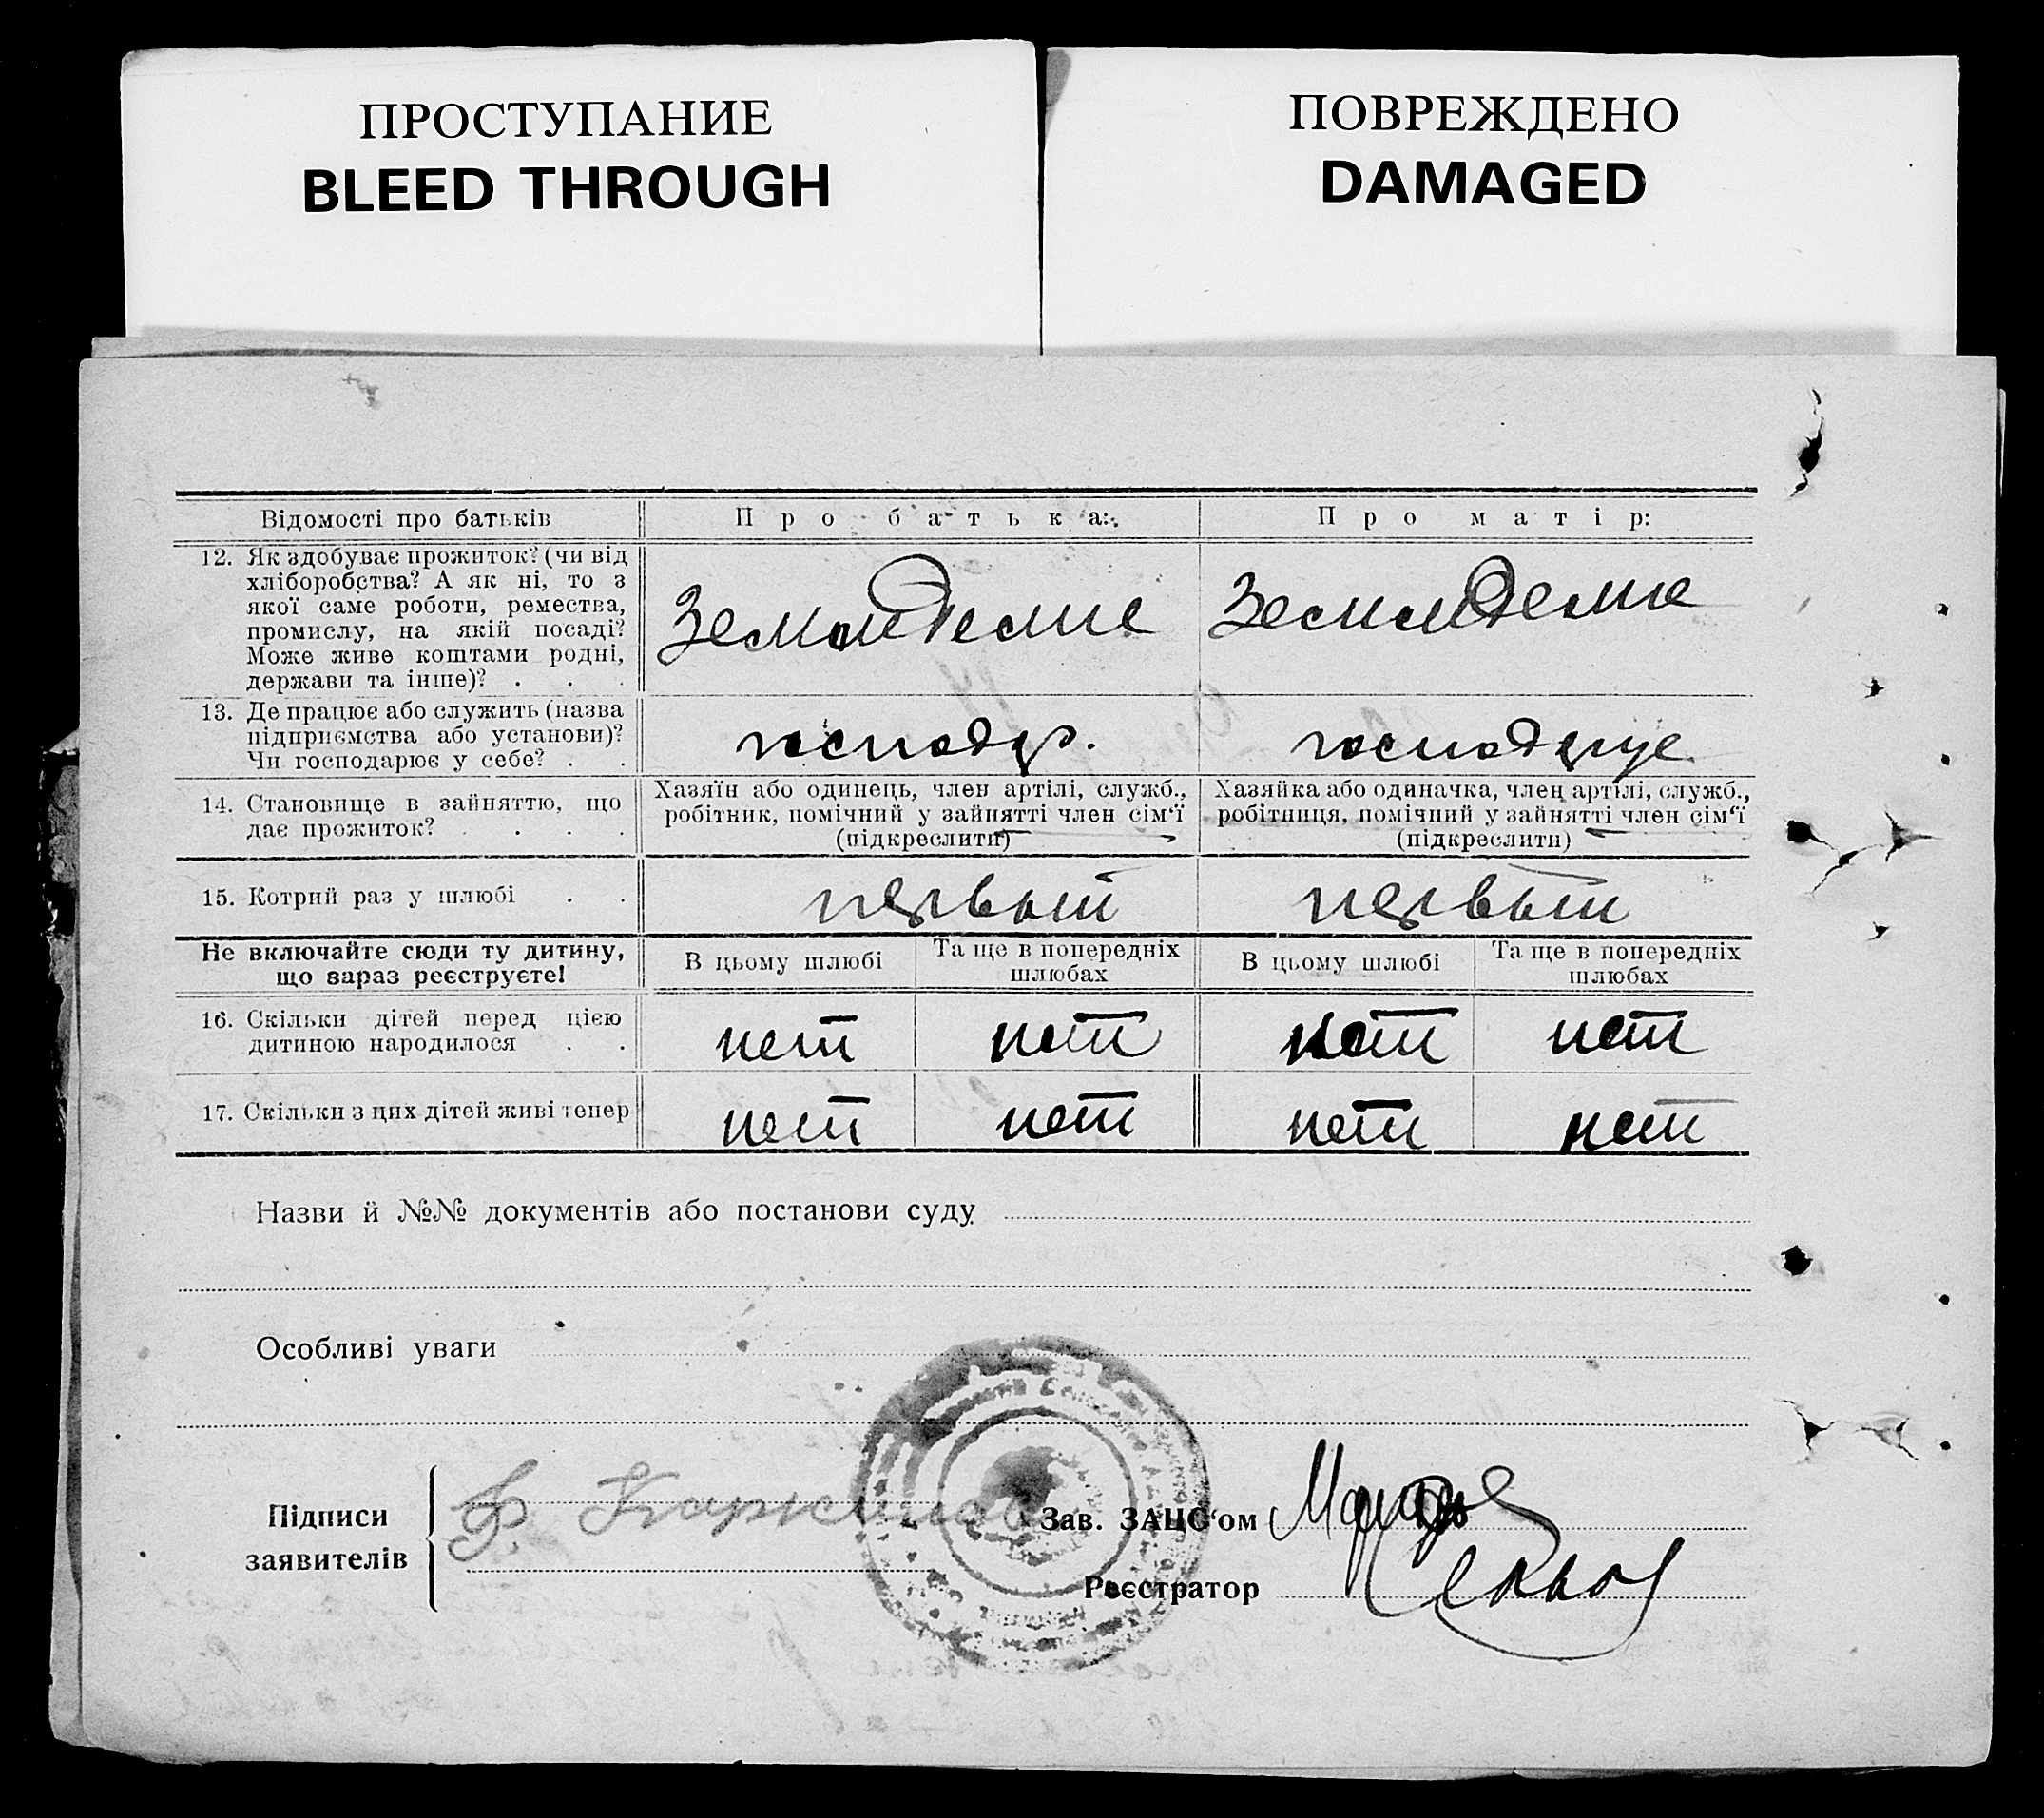 ПРОСТУПАНИЕ
BLEED THROUGH
ПОВРЕЖДЕНО
DAMAGED
Відомості про батьків
Про батька:
Про матір:
12. Як здобуває прожиток? (чи від
хліборобства? А як ні, то з
якої саме роботи, ремества,
промислу, на якій посаді?
Може живе коштами родні,
держави та інше)? . . .
Земледелие
Земледелие
13. Де працює або служить (назва
підприємства або установи)?
Чи господарює у себе? . .
господар.
господарує
14. Становище в зайняттю, що
дає прожиток? . . . .
Хазяїн або одинець, член артілі, служб.,
робітник, помічний у зайнятті член сім'ї
(підкреслити)
Хазяйка або одиначка, член артілі, служб.,
робітниця, помічний у зайнятті член сім'ї
(підкреслити)
15. Котрий раз у шлюбі . .
первый
первый
Не включайте сюди ту дитину,
що зараз реєструєте!
В цьому шлюбі
Та ще в попередніх
шлюбах
В цьому шлюбі
Та ще в попередніх
шлюбах
16. Скільки дітей перед цією
дитиною народилося . .
нет
нет
нет
нет
17. Скільки з цих дітей живі тепер
нет
нет
нет
нет
Назви й №№ документів або постанови суду
Особливі уваги
Підписи
заявителів
Ф.
Зав. ЗАЦС'ом
Реєстратор